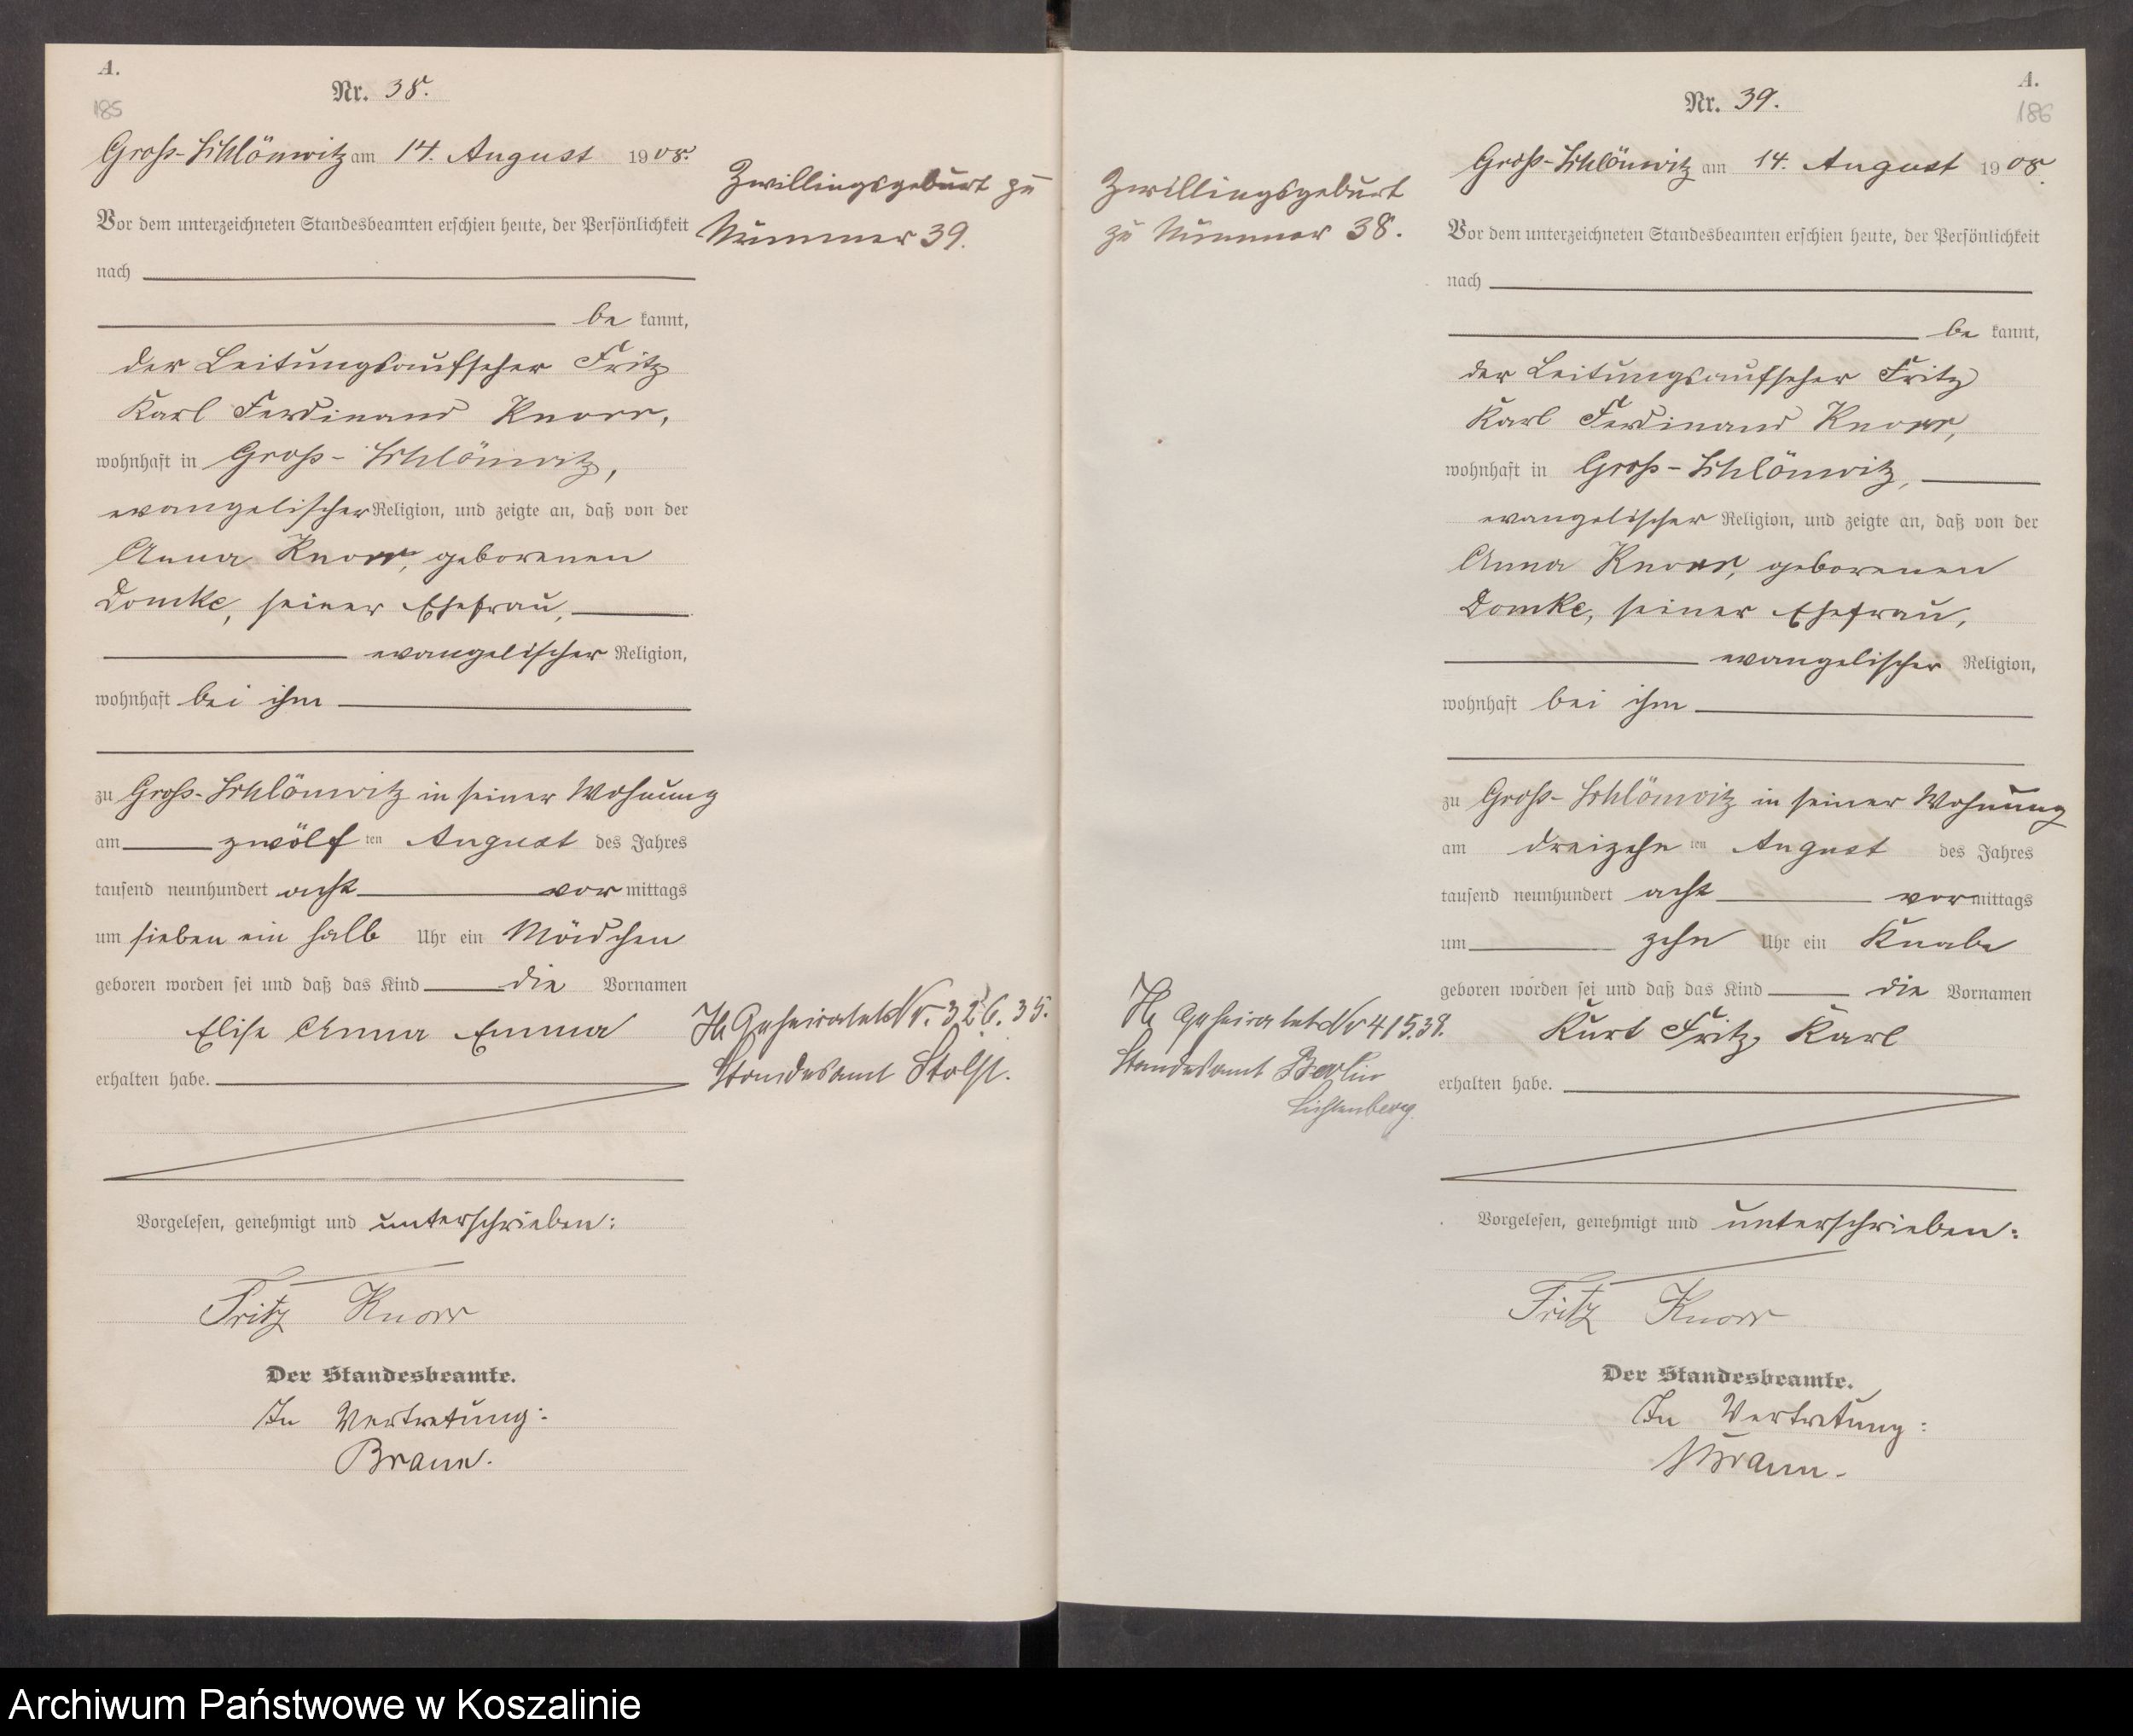 A.
185
Nr. 38.
Groß-Schlönwitz am 14. August 1908.
Vor dem unterzeichneten Standesbeamten erschien heute, der Persönlichkeit
nach
be kannt,
der Leitungsaufseher Fritz
Karl Ferdinand Knorr,
wohnhaft in Groß-Schlönwitz,
evangelischer Religion, und zeigte an, daß von der
Anna Knorr, geborenen
Domke, seiner Ehefrau,
evangelischer Religion,
wohnhaft bei ihm
zu Groß-Schlönwitz in seiner Wohnung
am zwölf ten August des Jahres
tausend neunhundert acht vor mittags
um sieben ein halb Uhr ein Mädchen
geboren worden sei und daß das Kind die Vornamen
Elise Anna Emma
erhalten habe.
Vorgelesen, genehmigt und unterschrieben:
Fritz Knorr
Der Standesbeamte.
In Vertretung:
Braun.
Zwillingsgeburt zu
Nummer 39.
Geheiratet Nr. 326.35.
Standesamt Stolp.
Zwillingsgeburt
zu Nummer 38.
Geheiratet Nr 415.39.
Standesamt Berlin
Lichtenberg.
A.
186
Nr. 39.
Groß-Schlönwitz am 14. August 1908.
Vor dem unterzeichneten Standesbeamten erschien heute, der Persönlichkeit
nach
be kannt,
der Leitungsaufseher Fritz
Karl Ferdinand Knorr,
wohnhaft in Groß-Schlönwitz,
evangelischer Religion, und zeigte an, daß von der
Anna Knorr, geborenen
Domke, seiner Ehefrau,
evangelischer Religion,
wohnhaft bei ihm
zu Groß-Schlönwitz in seiner Wohnung
am dreizehn ten August des Jahres
tausend neunhundert acht vor mittags
um zehn Uhr ein Knabe
geboren worden sei und daß das Kind die Vornamen
Kurt Fritz Karl
erhalten habe.
Vorgelesen, genehmigt und unterschrieben:
Fritz Knorr
Der Standesbeamte.
In Vertretung:
Braun.
Archiwum Państwowe w Koszalinie